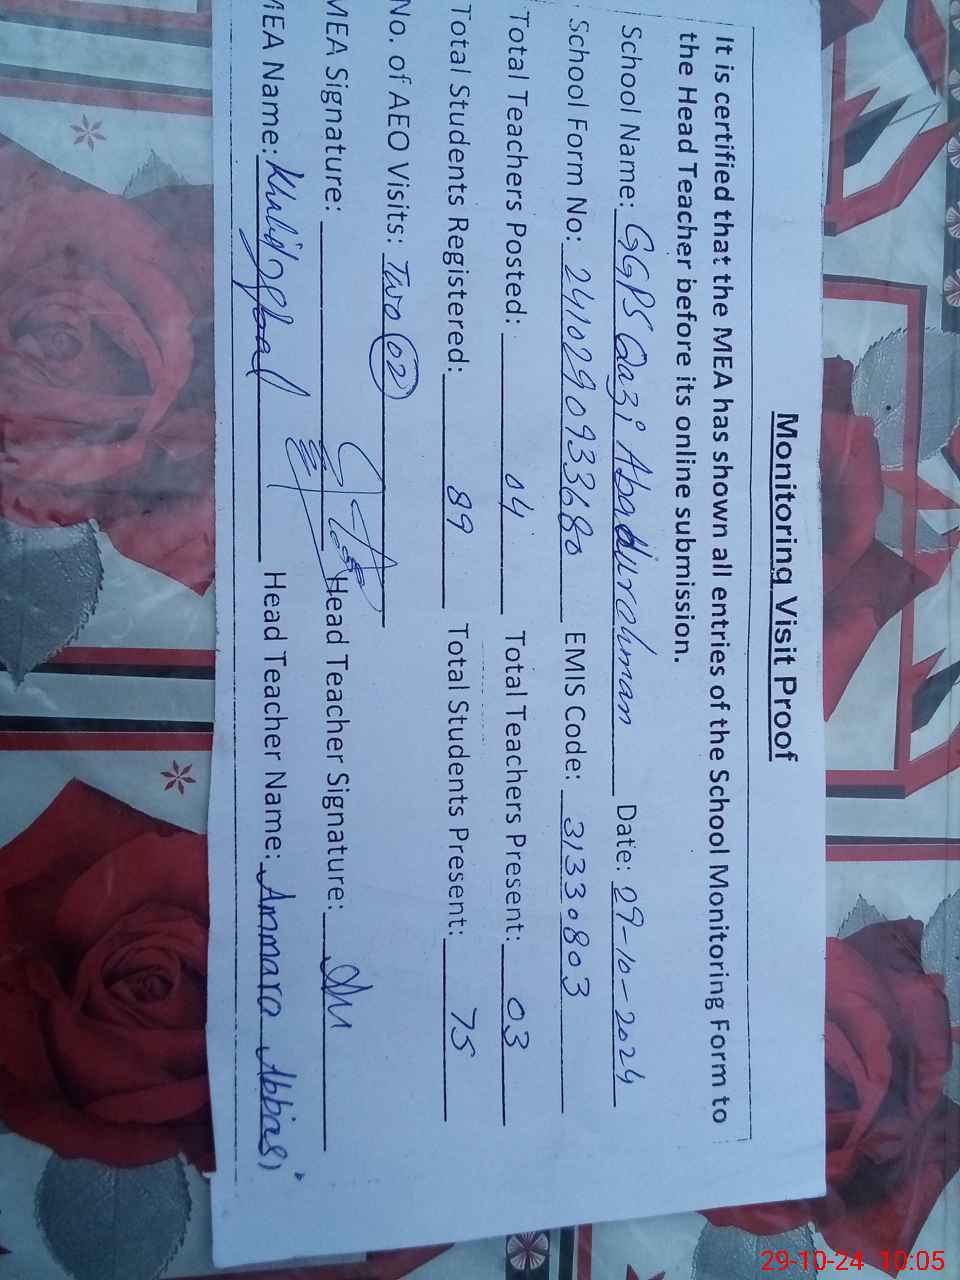 Monitoring Visit Proof
It is certified that the MEA has shown all entries of the School Monitoring Form to
the Head Teacher before its online submission.
School Name: GGPS Qazi Abqdurohman Date: 29-10-2024
School Form No: 2410290933680 EMIS Code: 31330803
Total Teachers Posted: 04 Total Teachers Present: 03
Total Students Registered: 89 Total Students Present: 75
No. of AEO Visits: Two (02)
MEA Signature: Head Teacher Signature:
MEA Name: Khalid Iqbal Head Teacher Name: Ammara Abbasi
29-10-24 10:05